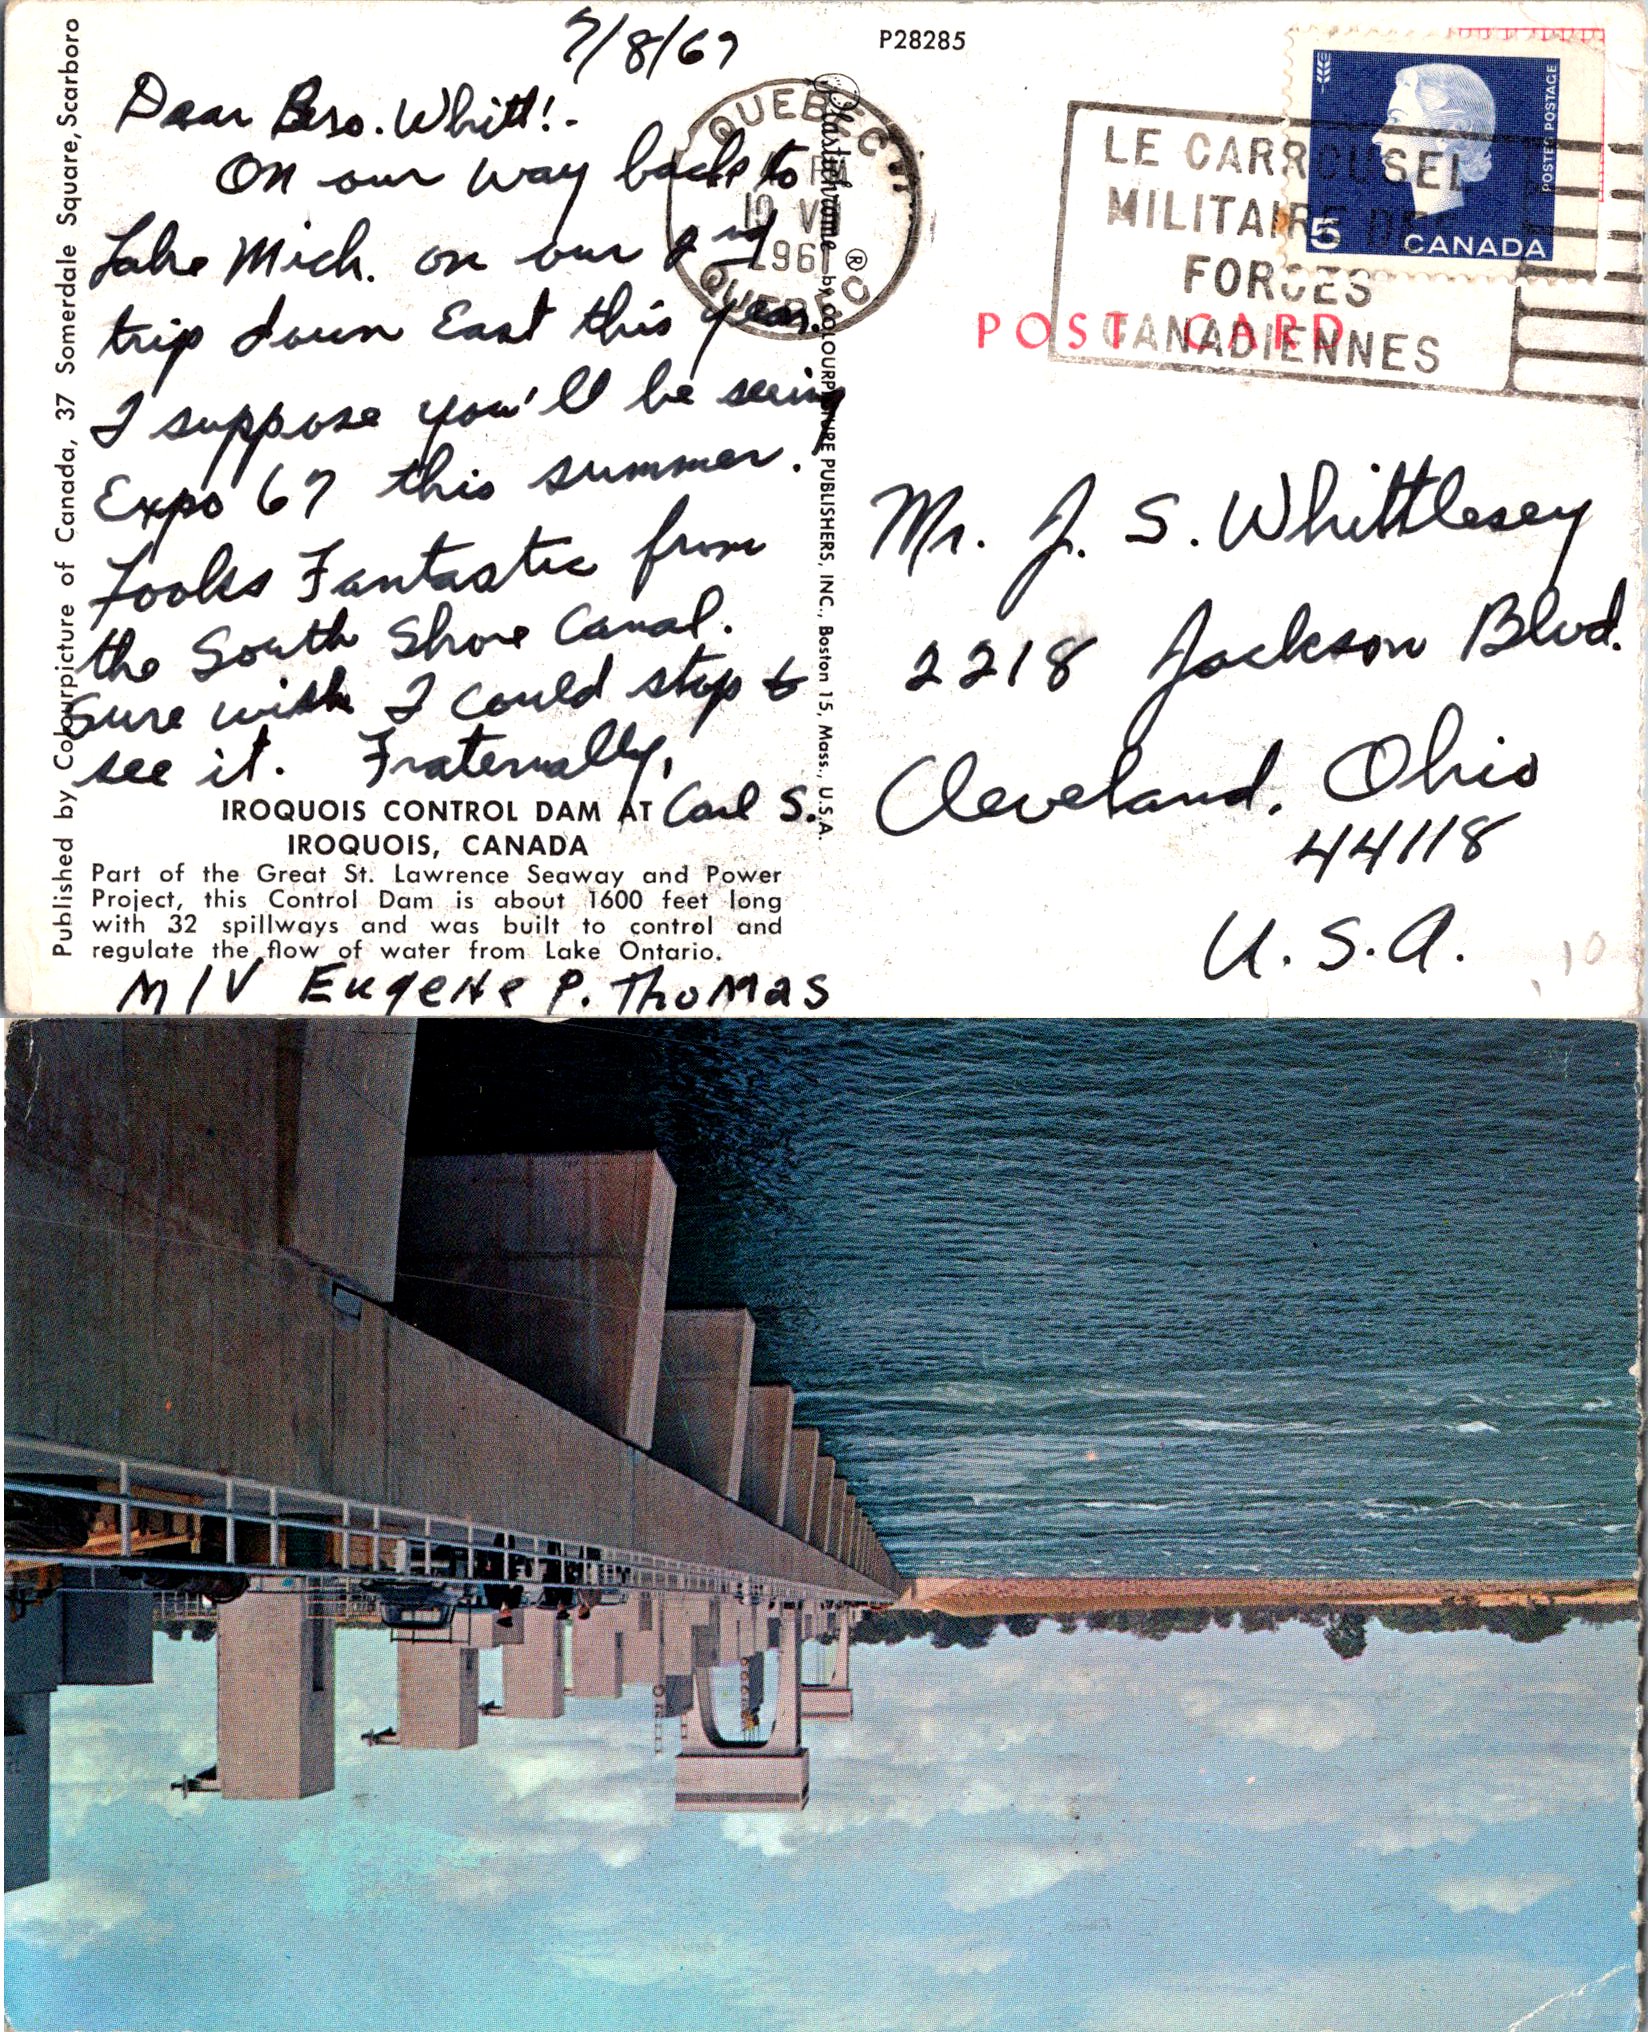 5/8/67
P28285
Dear Bro. Whitt!-
On our way back to
Lake Mich. on our 2nd
trip down East this year.
I suppose you'll be seeing
Expo 67 this summer.
Looks Fantastic from
the South Shore Canal.
Sure wish I could stop &
see it. Fraternally,
Carl S.
IROQUOIS CONTROL DAM AT
IROQUOIS, CANADA
Part of the Great St. Lawrence Seaway and Power
Project, this Control Dam is about 1600 feet long
with 32 spillways and was built to control and
regulate the flow of water from Lake Ontario.
M/V Eugene P. Thomas
Published by Colourpicture of Canada, 37 Somerdale Square, Scarboro
Plastichrome ® by COLOURPICTURE PUBLISHERS, INC., Boston 15, Mass., U.S.A.
QUEBEC
PM
196
QUEBEC
LE CARROUSEL
MILITAIRE DES
FORCES
CANADIENNES
POSTES POSTAGE
5 CANADA
POST CARD
Mr. J. S. Whittlesey
2218 Jackson Blvd.
Cleveland, Ohio
44118
U.S.A.
10